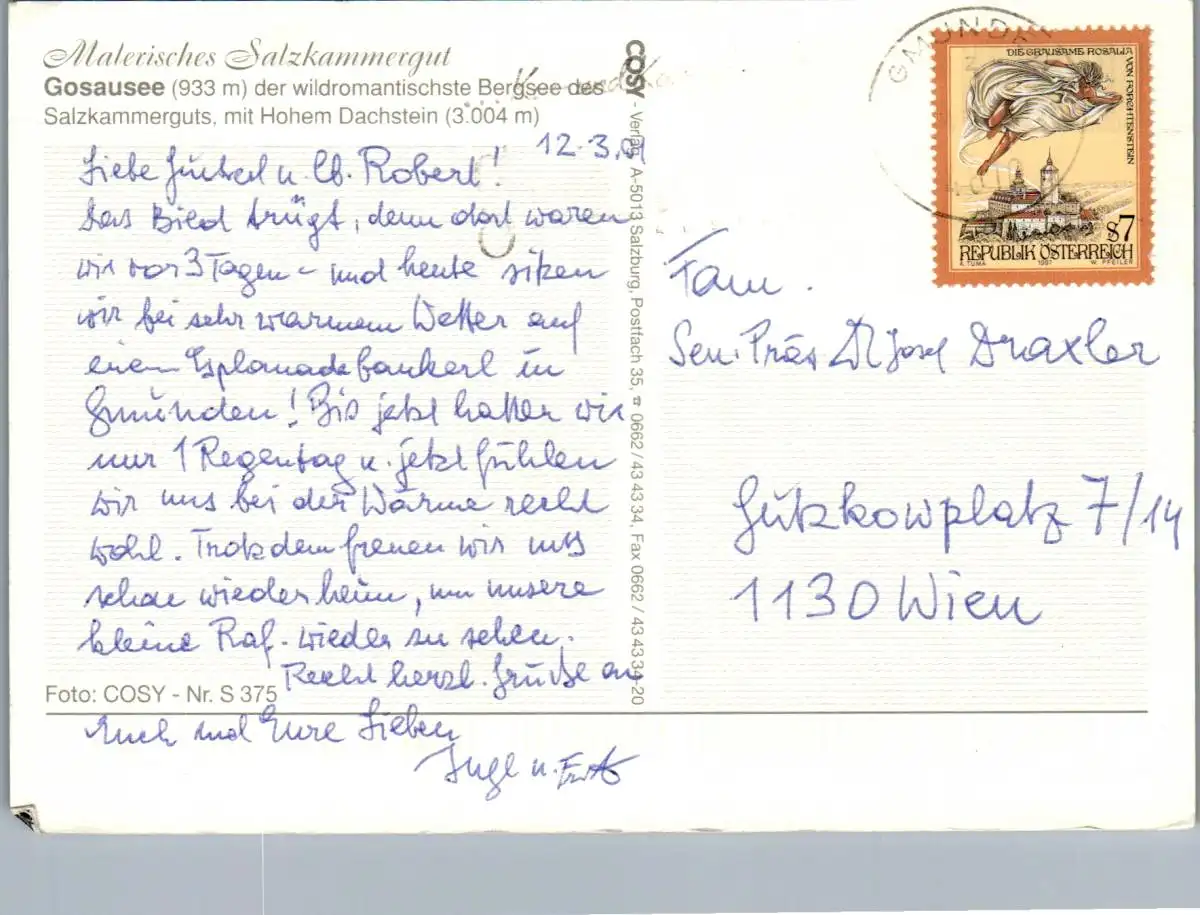 Malerisches Salzkammergut
Gosausee (933 m) der wildromantischste Bergsee des
Salzkammerguts, mit Hohem Dachstein (3.004 m)
12.3.01
Liebe u. lb. Robert!
Das Bild trügt, denn dort waren
wir vor 3 Tagen - und heute sitzen
wir bei sehr warmem Wetter auf
einem Esplanadebankerl in
Gmunden! Bis jetzt hatten wir
nur 1 Regentag u. jetzt fühlen
wir uns bei der Wärme recht
wohl. Trotzdem freuen wir uns
schon wieder heim, um unsere
kleine Raf. wieder zu sehen.
Recht herzl. Grüße an
Euch und Eure Lieben
Foto: COSY - Nr. S 375
COSY - Verlag, A-5013 Salzburg, Postfach 35, ☎ 0662 / 43 43 34, Fax 0662 / 43 43 34-20
GMUNDEN
DIE GRAUSAME ROSALIA
VON FORCHTENSTEIN
S7
REPUBLIK ÖSTERREICH
A. TUMA 1997 W. PFEILER
Fam.
Sen. Präs Dr Josef Draxler
Gützkowplatz 7/14
1130 Wien